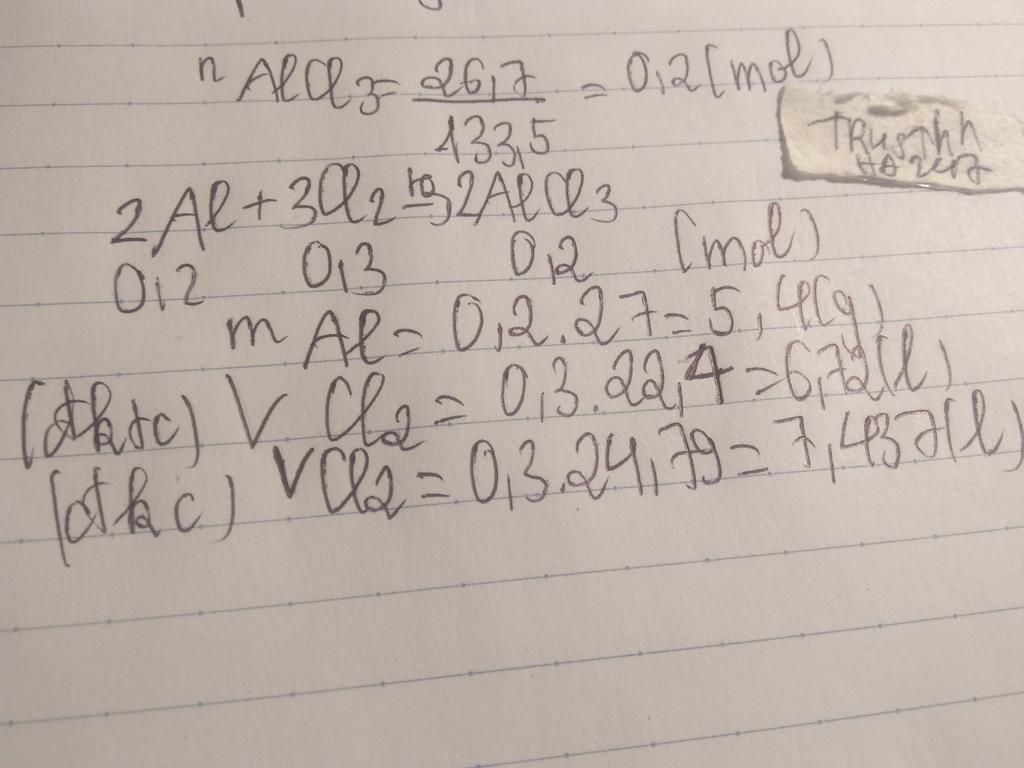 n AlCl3 = 26,7 / 133,5 = 0,2 (mol)
2Al + 3Cl2 to→ 2AlCl3
0,2 0,3 0,2 (mol)
m Al = 0,2.27 = 5,4(g)
(đktc) V Cl2 = 0,3.22,4 = 6,72(l)
(đkc) VCl2 = 0,3.24,79 = 7,437(l)